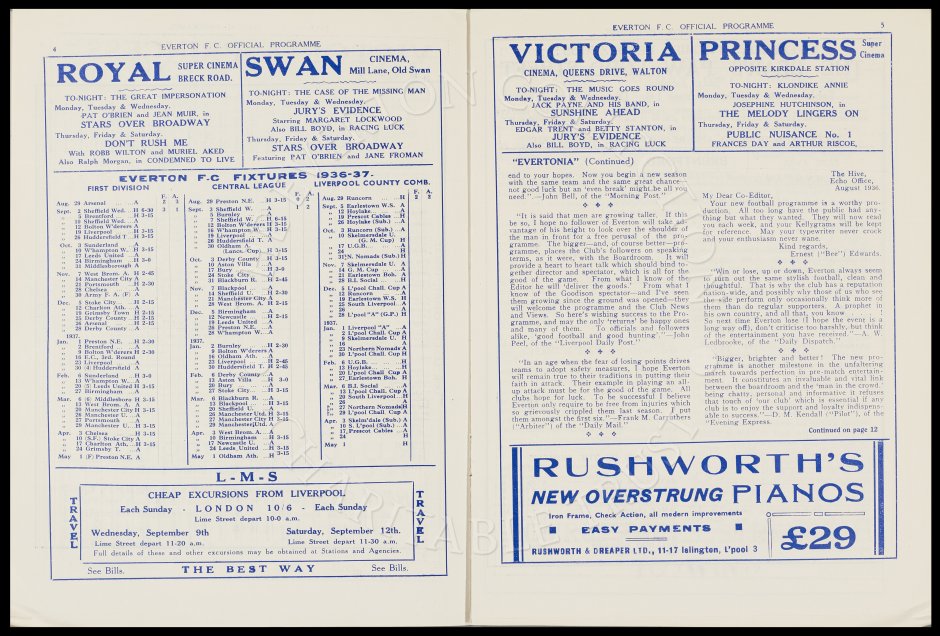 4
EVERTON F. C. OFFICIAL PROGRAMME
ROYAL SUPER CINEMA
BRECK ROAD.
TO-NIGHT: THE GREAT IMPERSONATION
Monday, Tuesday & Wednesday.
PAT O'BRIEN and JEAN MUIR, in
STARS OVER BROADWAY
Thursday, Friday & Saturday.
DON'T RUSH ME
With ROBB WILTON and MURIEL AKED
Also Ralph Morgan, in CONDEMNED TO LIVE
SWAN CINEMA,
Mill Lane, Old Swan
TO-NIGHT: THE CASE OF THE MISSING MAN
Monday, Tuesday & Wednesday,
JURY'S EVIDENCE
Starring MARGARET LOCKWOOD
Also BILL BOYD, in RACING LUCK
Thursday, Friday & Saturday.
STARS OVER BROADWAY
Featuring PAT O'BRIEN and JANE FROMAN
EVERTON F.C FIXTURES 1936-37.
FIRST DIVISION
Aug. 29 Arsenal A
Sept. 2 Sheffield Wed. H 6-30
5 Brentford H 3-15
Sheffield Wed. A
12 Bolton W'derers A
19 Liverpool H 3-15
26 Huddersfield T. A
Oct. 3 Sunderland A
10 W'hampton W. H 3-15
17 Leeds United A
24 Birmingham H 3-0
31 Middlesboro A
Nov. 7 West Brom. A. H 2-45
14 Manchester City A
21 Portsmouth H 2-30
28 Chelsea A
30 Army F. A. (F) A
Dec. 5 Stoke City H 2-15
12 Charlton Ath. A
19 Grimsby Town H 2-15
25 Derby County H 2-15
26 Arsenal H 2-15
28 Derby County A
1937.
Jan. 1 Preston N.E. H 2-30
2 Brentford A
9 Bolton W'derers H 2-30
16 E.C., 3rd. Round
23 Liverpool A
30 (4) Huddersfield A
Feb. 6 Sunderland H 3-0
13 W'hampton W. A
20 (5) Leeds United H 3-15
27 Birmingham A
Mar. 6 (6) Middlesboro H 3-15
13 West Brom. A. A
20 Manchester City H 3-15
26 Manchester U. A
27 Portsmouth A
29 Manchester U. H 3-15
Apr. 3 Chelsea H 3-15
10 (S.F.) Stoke City A
17 Charlton Ath. H 3-15
24 Grimsby T. A
May 1 (F) Preston N.E. A
CENTRAL LEAGUE
Aug. 29 Preston N.E. H 3-15
Sept. 3 Sheffield W. A
5 Burnley A
7 Sheffield W. H 6-15
12 Bolton W'derers H 3-15
16 W'hampton W. H 3-15
19 Liverpool A
26 Huddersfield T. A
30 Oldham A.
(Lancs. Cup) H 3-15
Oct. 3 Derby County H 3-15
10 Aston Villa A
17 Bury H 3-0
24 Stoke City A
31 Blackburn R. H 2-45
Nov. 7 Blackpool A
14 Sheffield U. H 2-30
21 Manchester City A
28 West Brom. A. H 2-15
Dec. 5 Birmingham A
12 Newcastle H 2-15
19 Leeds United A
28 Preston N.E. A
28 W'hampton W. A
1937.
2 Burnley H 2-30
Jan. 9 Bolton W'derers A
16 Oldham Ath. A
23 Liverpool H 2-45
30 Huddersfield T. H 2-45
Feb. 6 Derby County A
13 Aston Villa H 3-0
20 Bury A
27 Stoke City H 3-15
Mar. 6 Blackburn R. A
13 Blackpool H 3-15
20 Sheffield U. A
24 Manchester Utd. H 3-15
27 Manchester City H 3-15
29 Manchester Utd. A
Apr. 3 West Brom. A. A
10 Birmingham H 3-15
17 Newcastle U. A
24 Leeds United H 3-15
May 1 Oldham Ath. H 3-15
LIVERPOOL COUNTY COMB.
Aug. 29 Runcorn H
Sept. 5 Earlestown W.S. A
12 Hoylake A
19 Prescot Cables H
26 Hoylake (Sub.) A
Oct. 3 Runcorn (Sub.) A
10 Skelmersdale U.
(G. M. Cup) H
17 U.G.B. H
24 H
31 S. Nomads (Sub.) H
Nov. 7 Skelmersdale U. A
14 G. M. Cup
21 Earlestown Boh. A
28 B.I. Social H
Dec. 5 L'pool Chall. Cup
12 Runcorn A
19 Earlestown W.S. H
25 South Liverpool A
26
28 L'pool "A" (G.F.) H
1937.
Jan. 1 Liverpool "A"
2 L'pool Chall. Cup
9 Skelmersdale U. H
16
23 Northern Nomads A
30 L'pool Chall. Cup H
Feb. 6 U.G.B.
13 Hoylake H
20 L'pool Chall. Cup H
27 Earlestown Boh. H
Mar. 6 B.I. Social A
13 L'pool Chall. Cup A
20 South Liverpool H
26
27 Northern Nomads H
29 L'pool Chall. Cup A
Apr. 3 Skelm'dale (Sub.) H
10 S. L'pool (Sub.) A
17 Prescot Cables A
24 H
May 1 H
L-M-S
TRAVEL
CHEAP EXCURSIONS FROM LIVERPOOL
Each Sunday - LONDON 10/6 - Each Sunday
Lime Street depart 10-0 a.m.
Wednesday, September 9th
Lime Street depart 11-20 a.m.
Saturday, September 12th.
Lime Street depart 11-30 a.m.
Full details of these and other excursions may be obtained at Stations and Agencies.
TRAVEL
See Bills. THE BEST WAY See Bills.
EVERTON F. C. OFFICIAL PROGRAMME 5
VICTORIA
CINEMA, QUEENS DRIVE, WALTON
TO-NIGHT: THE MUSIC GOES ROUND
Monday, Tuesday & Wednesday,
JACK PAYNE AND HIS BAND, in
SUNSHINE AHEAD
Thursday, Friday & Saturday:
EDGAR TRENT and BETTY STANTON, in
JURY'S EVIDENCE
Also BILL BOYD, in RACING LUCK
PRINCESS Super Cinema
OPPOSITE KIRKDALE STATION
TO-NIGHT: KLONDIKE ANNIE
Monday, Tuesday & Wednesday.
JOSEPHINE HUTCHINSON, in
THE MELODY LINGERS ON
Thursday, Friday & Saturday.
PUBLIC NUISANCE No. 1
FRANCES DAY and ARTHUR RISCOE,
"EVERTONIA" (Continued)
end to your hopes. Now you begin a new season
with the same team and the same great chance—
not good luck but an 'even break' might be all you
need."—John Bell, of the "Morning Post."
"It is said that men are growing taller. If this
be so, I hope no follower of Everton will take ad-
vantage of his height to look over the shoulder of
the man in front for a free perusal of the pro-
gramme. The bigger—and, of course, better—pro-
gramme, places the Club's followers on speaking
terms, as it were, with the Boardroom. It will
provide a heart to heart talk which should bind to-
gether director and spectator, which is all for the
good of the game. From what I know of the
Editor he will 'deliver the goods.' From what I
know of the Goodison spectator—and I've seen
them growing since the ground was opened—they
will welcome the programme and the Club News
and Views. So here's wishing success to the Pro-
gramme, and may the only 'returns' be happy ones
and many of them. To officials and followers
alike, 'good football and good hunting'."—John
Peel, of the "Liverpool Daily Post."
"In an age when the fear of losing points drives
teams to adopt safety measures, I hope Everton
will remain true to their traditions in putting their
faith in attack. Their example in playing an all-
up attack must be for the good of the game. All
clubs hope for luck. To be successful I believe
Everton only require to be free from injuries which
so grievously crippled them last season. I put
them amongst the first six."—Frank M. Carruthers
("Arbiter") of the "Daily Mail."
The Hive,
Echo Office,
August 1936.
My Dear Co-Editor,
Your new football programme is a worthy pro-
duction. All too long have the public had any-
thing but what they wanted. They will now read
you each week, and your Kellygrams will be kept
for reference. May your typewriter never crock
and your enthusiasm never wane.
Kind regards,
Ernest ("Bee") Edwards.
"Win or lose, up or down, Everton always seem
to turn out the same stylish football, clean and
thoughtful. That is why the club has a reputation
nation-wide, and possibly why those of us who see
the side perform only occasionally think more of
them than do regular supporters. A prophet in
his own country, and all that, you know.
So next time Everton lose (I hope the event is a
long way off), don't criticise too harshly, but think
of the entertainment you have received."—A. W.
Ledbrooke, of the "Daily Dispatch."
'Bigger, brighter and better! The new pro-
gramme is another milestone in the unfaltering
march towards perfection in pre-match entertain-
ment. It constitutes an invaluable and vital link
between the boardroom and the 'man in the crowd.'
being chatty, personal and informative it refuses
that touch of 'our club' which is essential if any
club is to enjoy the support and loyalty indispens-
able to success."—D. M. Kendall ("Pilot"), of the
"Evening Express.
Continued on page 12
RUSHWORTH'S
NEW OVERSTRUNG PIANOS
Iron Frame, Check Action, all modern improvements
EASY PAYMENTS
£29
RUSHWORTH & DREAPER LTD., 11-17 Islington, L'pool 3